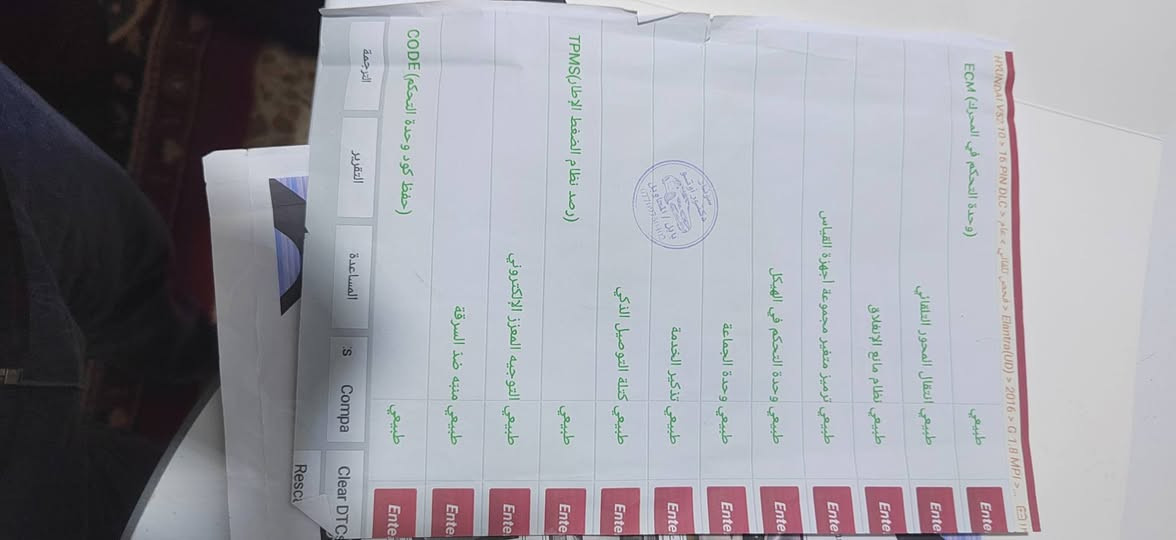 HYUNDAI V52.10 > 16 PIN DLC > عام > فحص تلقائي > Elantra(UD) > 2016 > G 1.8 MPI > ...
ECM (وحدة التحكم في المحرك) طبيعي Ente
انتقال المحور التلقائي طبيعي Ente
نظام مانع الإنغلاق طبيعي Ente
ترميز متغير مجموعة أجهزة القياس طبيعي Ente
وحدة التحكم في الهيكل طبيعي Ente
وحدة الجماعة طبيعي Ente
تذكير الخدمة طبيعي Ente
كتلة التوصيل الذكي طبيعي Ente
TPMS(رصد نظام الضغط الإطار) طبيعي Ente
التوجيه المعزز الإلكتروني طبيعي Ente
منبه ضد السرقة طبيعي Ente
CODE (حفظ كود وحدة التحكم) طبيعي Ente
الترجمة التقرير المساعدة :s Compa Clear DTC
Resca